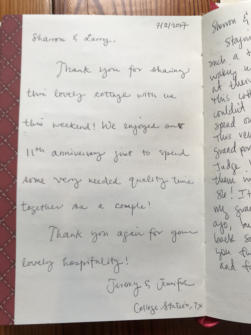 7/2/2017
Sharron & Larry,
Thank you for sharing
this lovely cottage with us
this weekend! We enjoyed our
11th anniversary just to spend
some very needed quality time
together as a couple!
Thank you again for your
lovely hospitality!
Jeremy & Jennifer
College Station, Tx
Sharron &
Stayin
such a t
waking u
at their
this lit
couldn't
spend o
This ve
Judge
them w
my gra
ago, h
back so
you f
and f